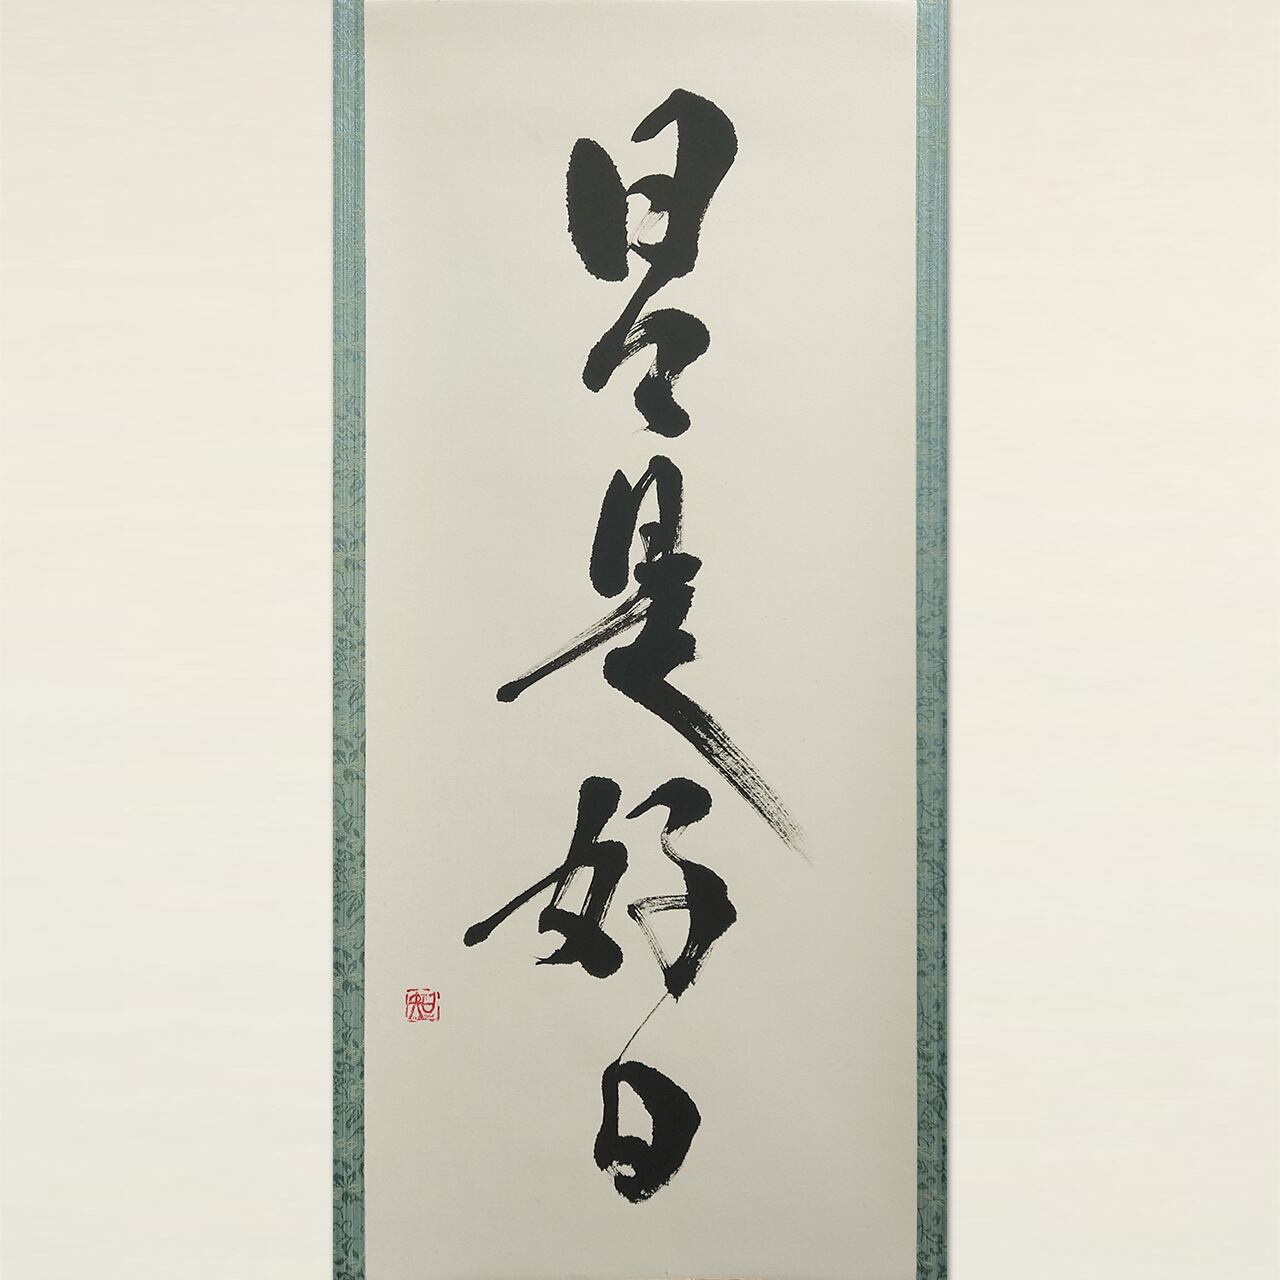 日々是好日
知